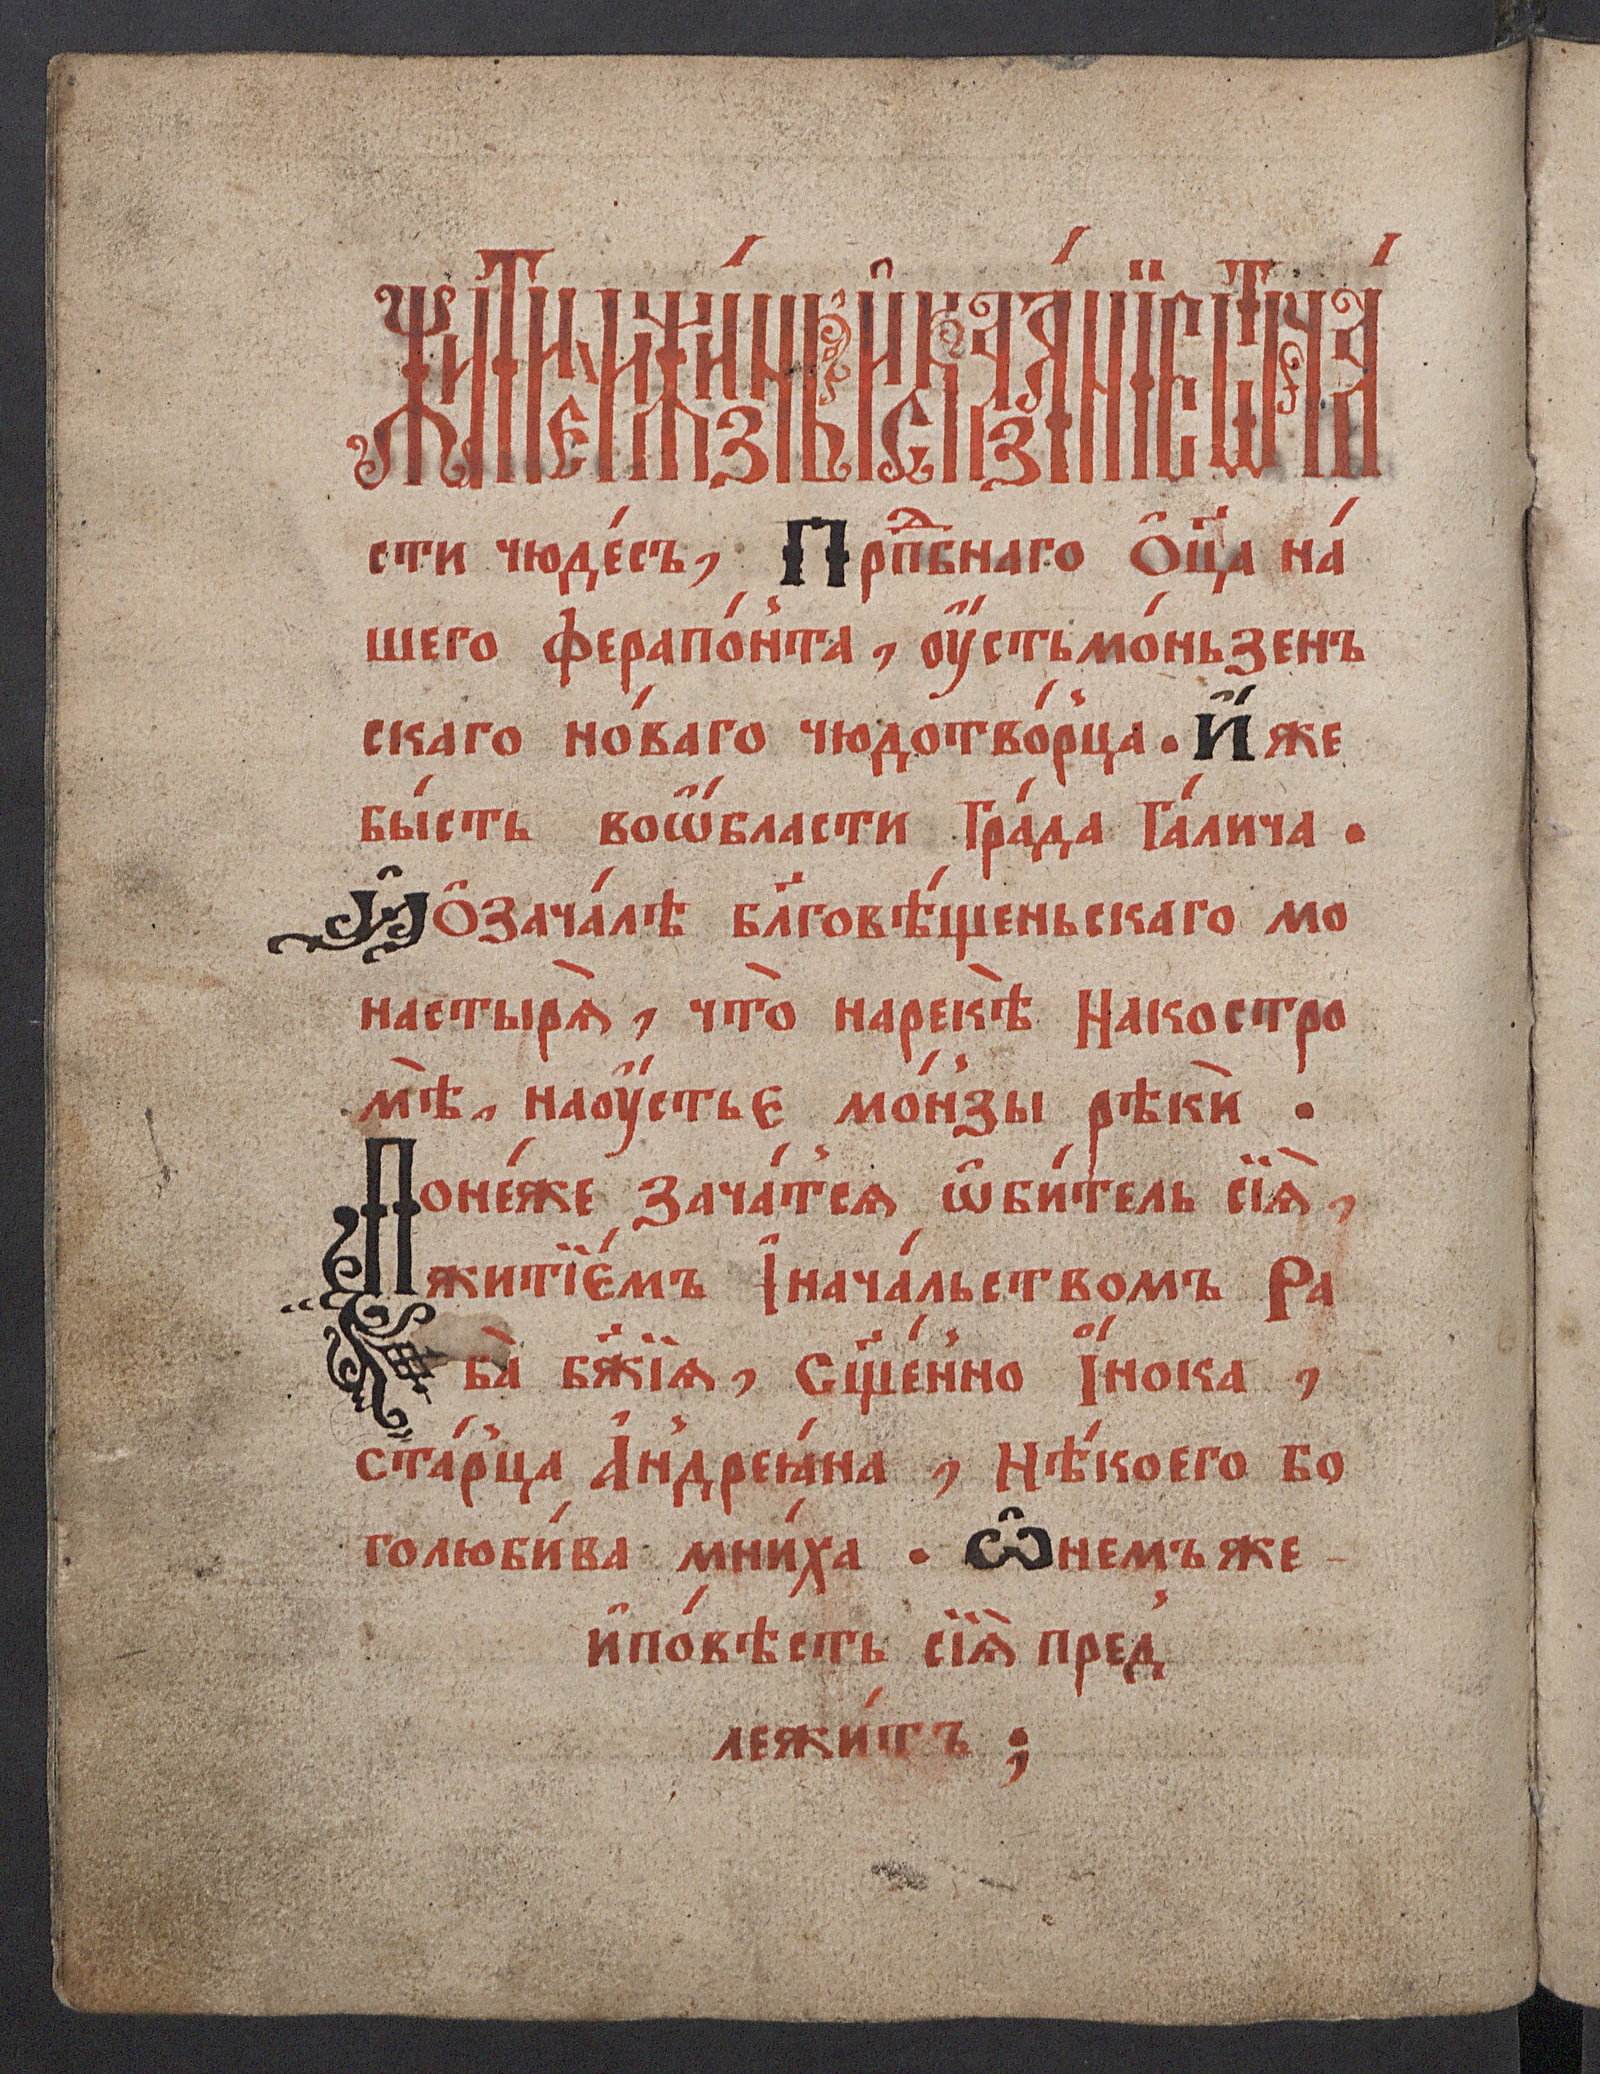 Житие и жи́знь и҆ сказа́нїе ѿ ча́
сти чюде́съ, Прпⷣбнаго Ѻ҆ц҃а на́
шего ферапо́нта, оу҆́стьмо́ньзенъ
скаго но́ваго чюдотво́рца. И҆́же
бы́сть воѡ҆́бласти Гра́да Га́лича.
И҆ѻ҆зача́лѣ бл҃говѣ́щеньскаго мо
настырѧ̀, что̀ нарекѣ Накостро
мѣ̀, наоу҆́стьє мо́нзы рѣкѝ.
Поне́же зача́тсѧ ѡ҆би́тель сїѧ̀,
житїє́мъ І҆нача́льствомъ Ра
ба̀ бж҃їѧ, Сщ҃е́нно І҆́нока,
ста́рца А҆ндрея́на, Нѣ́коего бо
голюби́ва мни́ха. Ѡ҆немъже
и҆по́вѣсть сїѧ̀ пред
лежи́тъ;